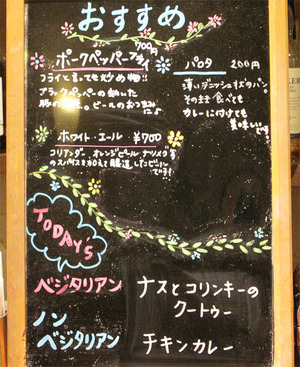 おすすめ
ポークペッパーフライ
700円
フライと言っても炒め物!!
ブラックペッパーの効いた
豚の 。ビールのおつまみに♪
パロタ 200円
薄いデニッシュ状のパン
そのまま食べても
カレーに付けても
美味しいです
ホワイト・エール ¥700
コリアンダー オレンジピール ナツメグ等
のスパイスを加えて醸造したビール
です!
TODAY'S
ベジタリアン
ナスとコリンキーの
クートゥー
ノン
ベジタリアン
チキンカレー